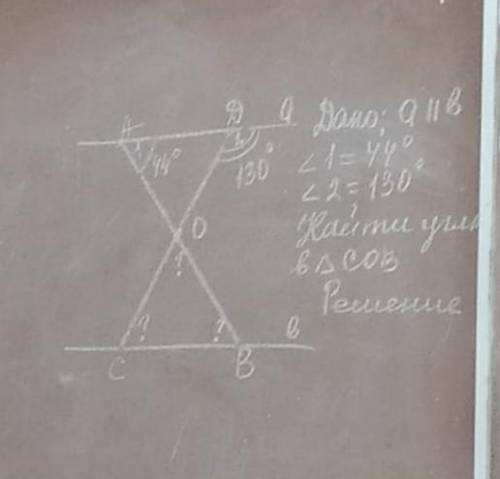 A D a
44°
2
130°
O
?
? ?
C B в
Дано: a || в
∠1 = 44°
∠2 = 130°
Найти углы
в △ COB
Решение